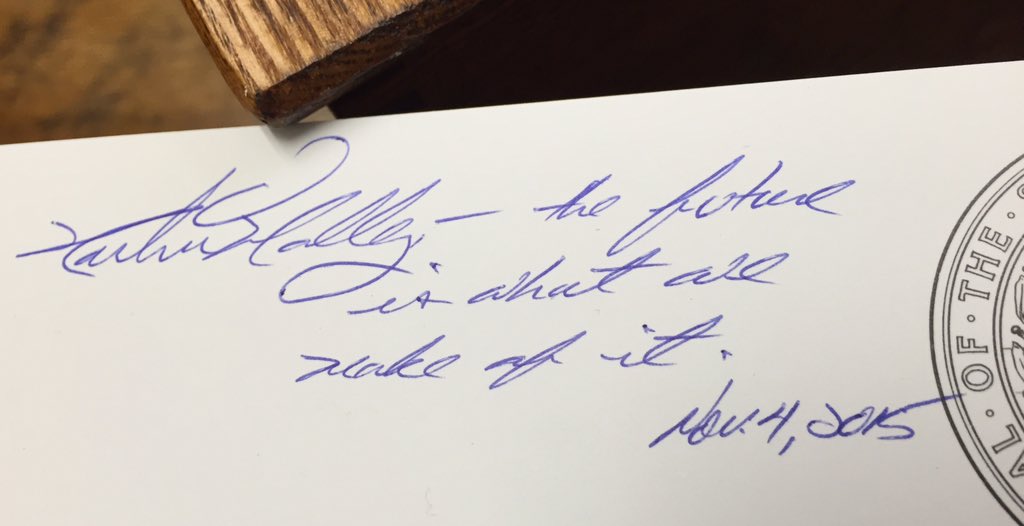 Martin O'Malley — the future
is what we
make of it.
Nov. 4, 2015
AL · OF · THE ·